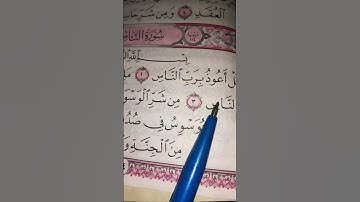 الْعُقَدِ ٤ وَمِن شَرِّ حَا
سُورَةُ النَّاس
بِسْمِ اللَّهِ
أَعُوذُ بِرَبِّ النَّاسِ ١ مَ
النَّاسِ ٣ مِن شَرِّ الْوَسْوَ
يُوَسْوِسُ فِي صُدُ
مِنَ الْجِنَّةِ وَ